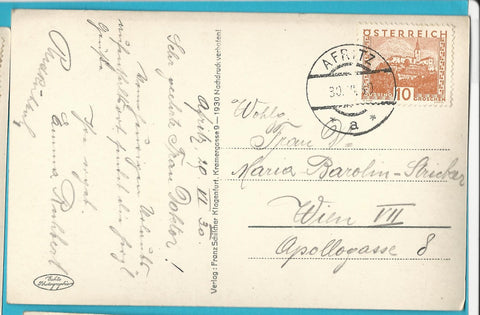 Afritz 20 VII 30.
Sehr verehrte Frau Doktor!
Vom hiesigen Urlaubs-
aufenthalt sendet die
Grüße
Ihr ergeb.
Emma
Verlag: Franz Schilcher Klagenfurt, Kramergasse 9 – 1930 Nachdruck verboten!
ÖSTERREICH
10
GROSCHEN
AFRITZ
30.
* a *
Wohlg.
Frau Dr.
Maria Barolin-Stricker
Wien VII
Apollogasse 8